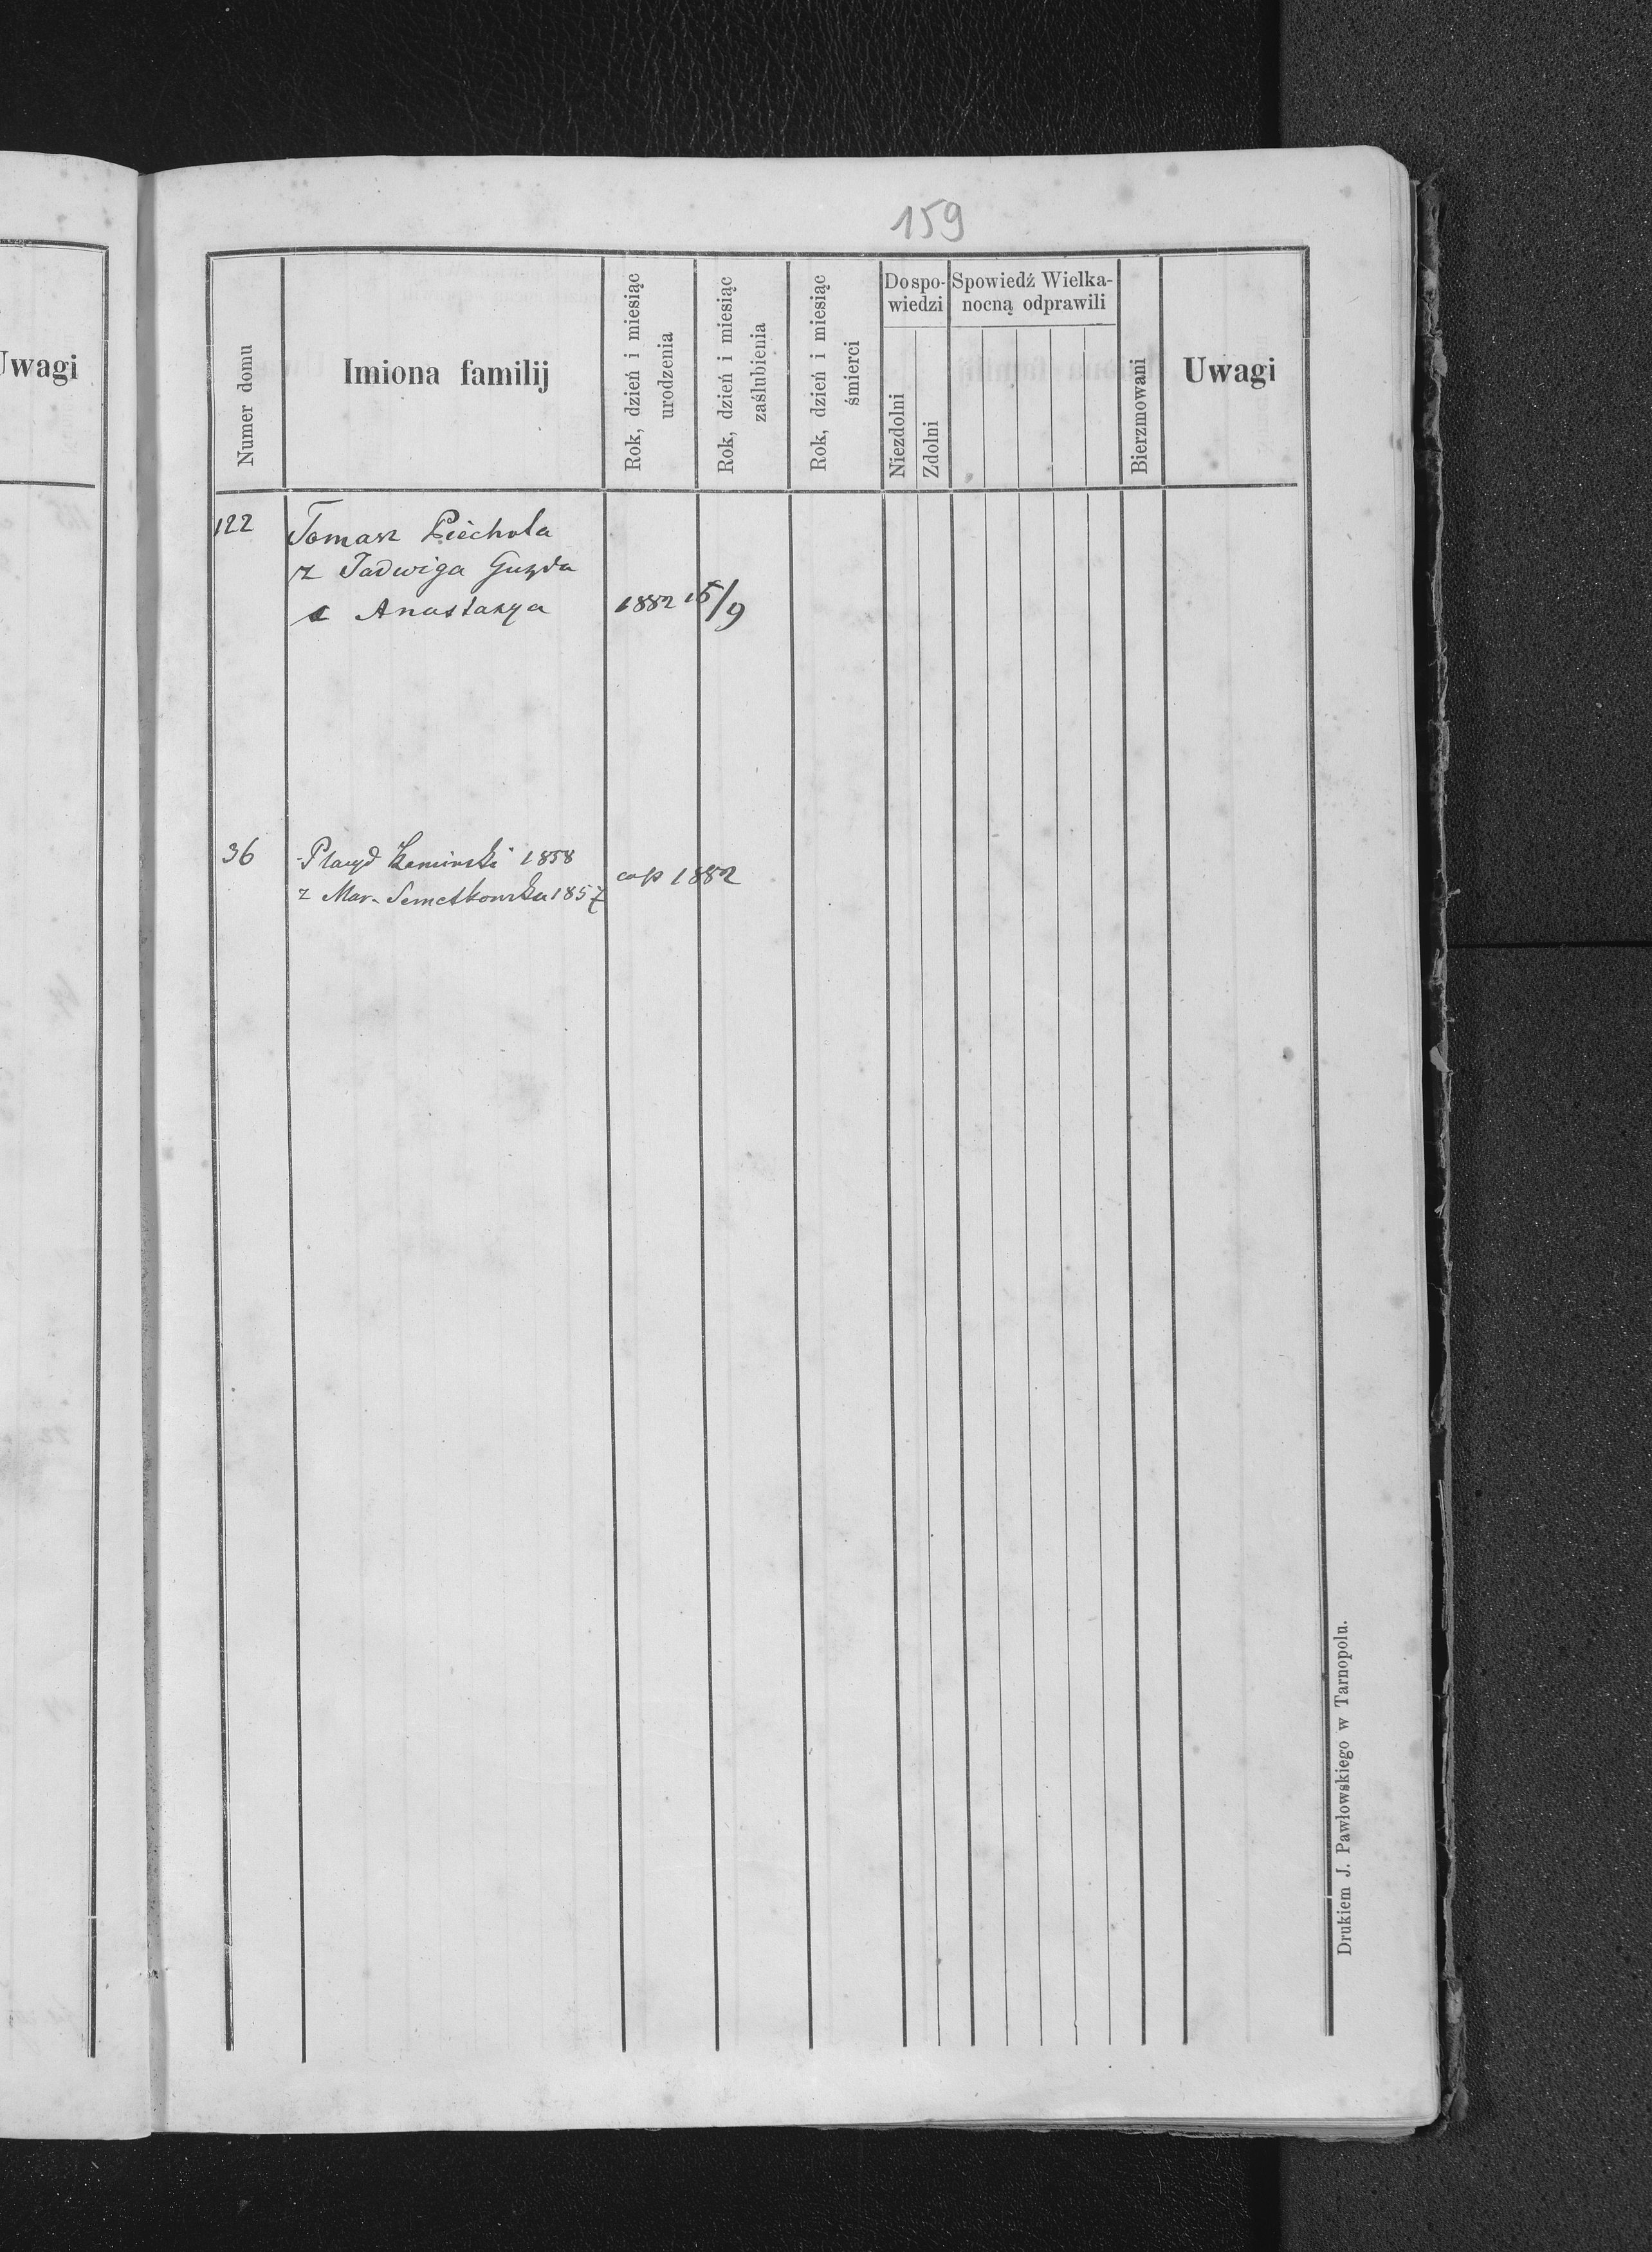 159
Uwagi
Numer domu
Imiona familij
Rok, dzień i miesiąc
urodzenia
Rok, dzień i miesiąc
zaślubienia
Rok, dzień i miesiąc
śmierci
Do spo-
wiedzi
Niezdolni
Zdolni
Spowiedź Wielka-
nocną odprawili
Bierzmowani
Uwagi
122 Tomasz Piechota
z Jadwiga Guzda
Anastazya 1882 15/9
36 Placyd Kaminski 1858
z Mar. 1857 cop 1882
Drukiem J. Pawłowskiego w Tarnopolu.